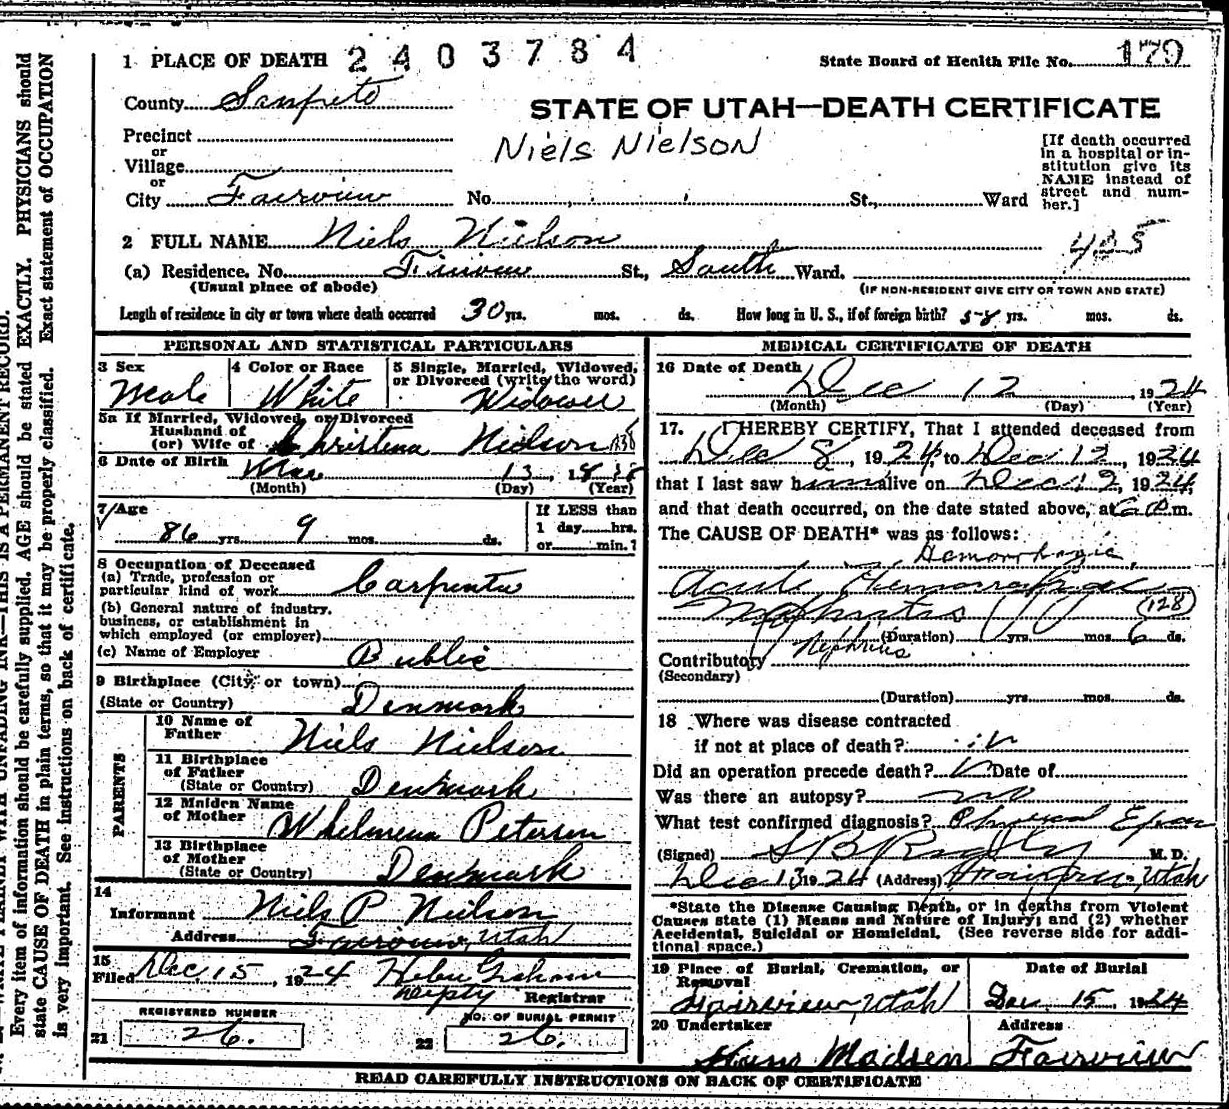 1 PLACE OF DEATH 2403784
State Board of Health File No. 179
County Sanpete
STATE OF UTAH—DEATH CERTIFICATE
Niels Nielson
Precinct
or
Village
or
City Fairview No. St., Ward
[If death occurred
in a hospital or in-
stitution give its
NAME instead of
street and num-
ber.]
2 FULL NAME Niels Nielson
405
(a) Residence. No. St., South Ward.
(Usual place of abode)
(IF NON-RESIDENT GIVE CITY OR TOWN AND STATE)
Length of residence in city or town where death occurred 30 yrs. mos. ds. How long in U. S., if of foreign birth? 58 yrs. mos. ds.
PERSONAL AND STATISTICAL PARTICULARS
3 Sex
Male
4 Color or Race
White
5 Single, Married, Widowed,
or Divorced (write the word)
Widower
5a If Married, Widowed, or Divorced
Husband of
(or) Wife of Christina Nielson
6 Date of Birth Mar 13, 1838
(Month) (Day) (Year)
7 Age
86 yrs. 9 mos. ds.
If LESS than
1 day hrs.
or min.?
8 Occupation of Deceased
(a) Trade, profession or
particular kind of work Carpenter
(b) General nature of industry,
business, or establishment in
which employed (or employer)
(c) Name of Employer Public
9 Birthplace (City, or town)
(State or Country) Denmark
PARENTS
10 Name of
Father Niels Nielson
11 Birthplace
of Father
(State or Country) Denmark
12 Maiden Name
of Mother Whelmena Petersen
13 Birthplace
of Mother
(State or Country) Denmark
14
Informant Niels P Nielson
Address Fairview, Utah
15
Filed Dec, 15, 1924 Deputy Registrar
REGISTERED NUMBER
21 26.
NO. OF BURIAL PERMIT
22 26.
MEDICAL CERTIFICATE OF DEATH
16 Date of Death
Dec 12, 1924
(Month) (Day) (Year)
17. I HEREBY CERTIFY, That I attended deceased from
Dec 8, 1924, to Dec 12, 1924
that I last saw him alive on Dec 12, 1924,
and that death occurred, on the date stated above, at 6 P.m.
The CAUSE OF DEATH* was as follows:
Hemorrhagic
Acute Hemorrhagic
Nephritis (128)
(Duration) yrs. mos. 6 ds.
Nephritis
Contributory
(Secondary)
(Duration) yrs. mos. ds.
18 Where was disease contracted
if not at place of death?
Did an operation precede death? Date of
Was there an autopsy? no
What test confirmed diagnosis? Physical Exam
(Signed) M. D.
Dec 13 1924 (Address) Fairview, Utah
*State the Disease Causing Death, or in deaths from Violent
Causes state (1) Means and Nature of Injury; and (2) whether
Accidental, Suicidal or Homicidal. (See reverse side for addi-
tional space.)
19 Place of Burial, Cremation, or
Removal
Fairview, Utah
Date of Burial
Dec 15 1924
20 Undertaker
Hans Madsen
Address
Fairview
READ CAREFULLY INSTRUCTIONS ON BACK OF CERTIFICATE
Every item of information should be carefully supplied. AGE should be stated EXACTLY. PHYSICIANS should
state CAUSE OF DEATH in plain terms, so that it may be properly classified. Exact statement of OCCUPATION
is very important. See instructions on back of certificate.